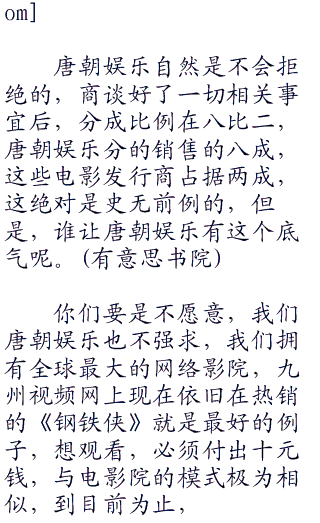 om]
唐朝娱乐自然是不会拒
绝的，商谈好了一切相关事
宜后，分成比例在八比二，
唐朝娱乐分的销售的八成，
这些电影发行商占据两成，
这绝对是史无前例的，但
是，谁让唐朝娱乐有这个底
气呢。(有意思书院)
你们要是不愿意，我们
唐朝娱乐也不强求，我们拥
有全球最大的网络影院，九
州视频网上现在依旧在热销
的《钢铁侠》就是最好的例
子，想观看，必须付出十元
钱，与电影院的模式极为相
似，到目前为止，